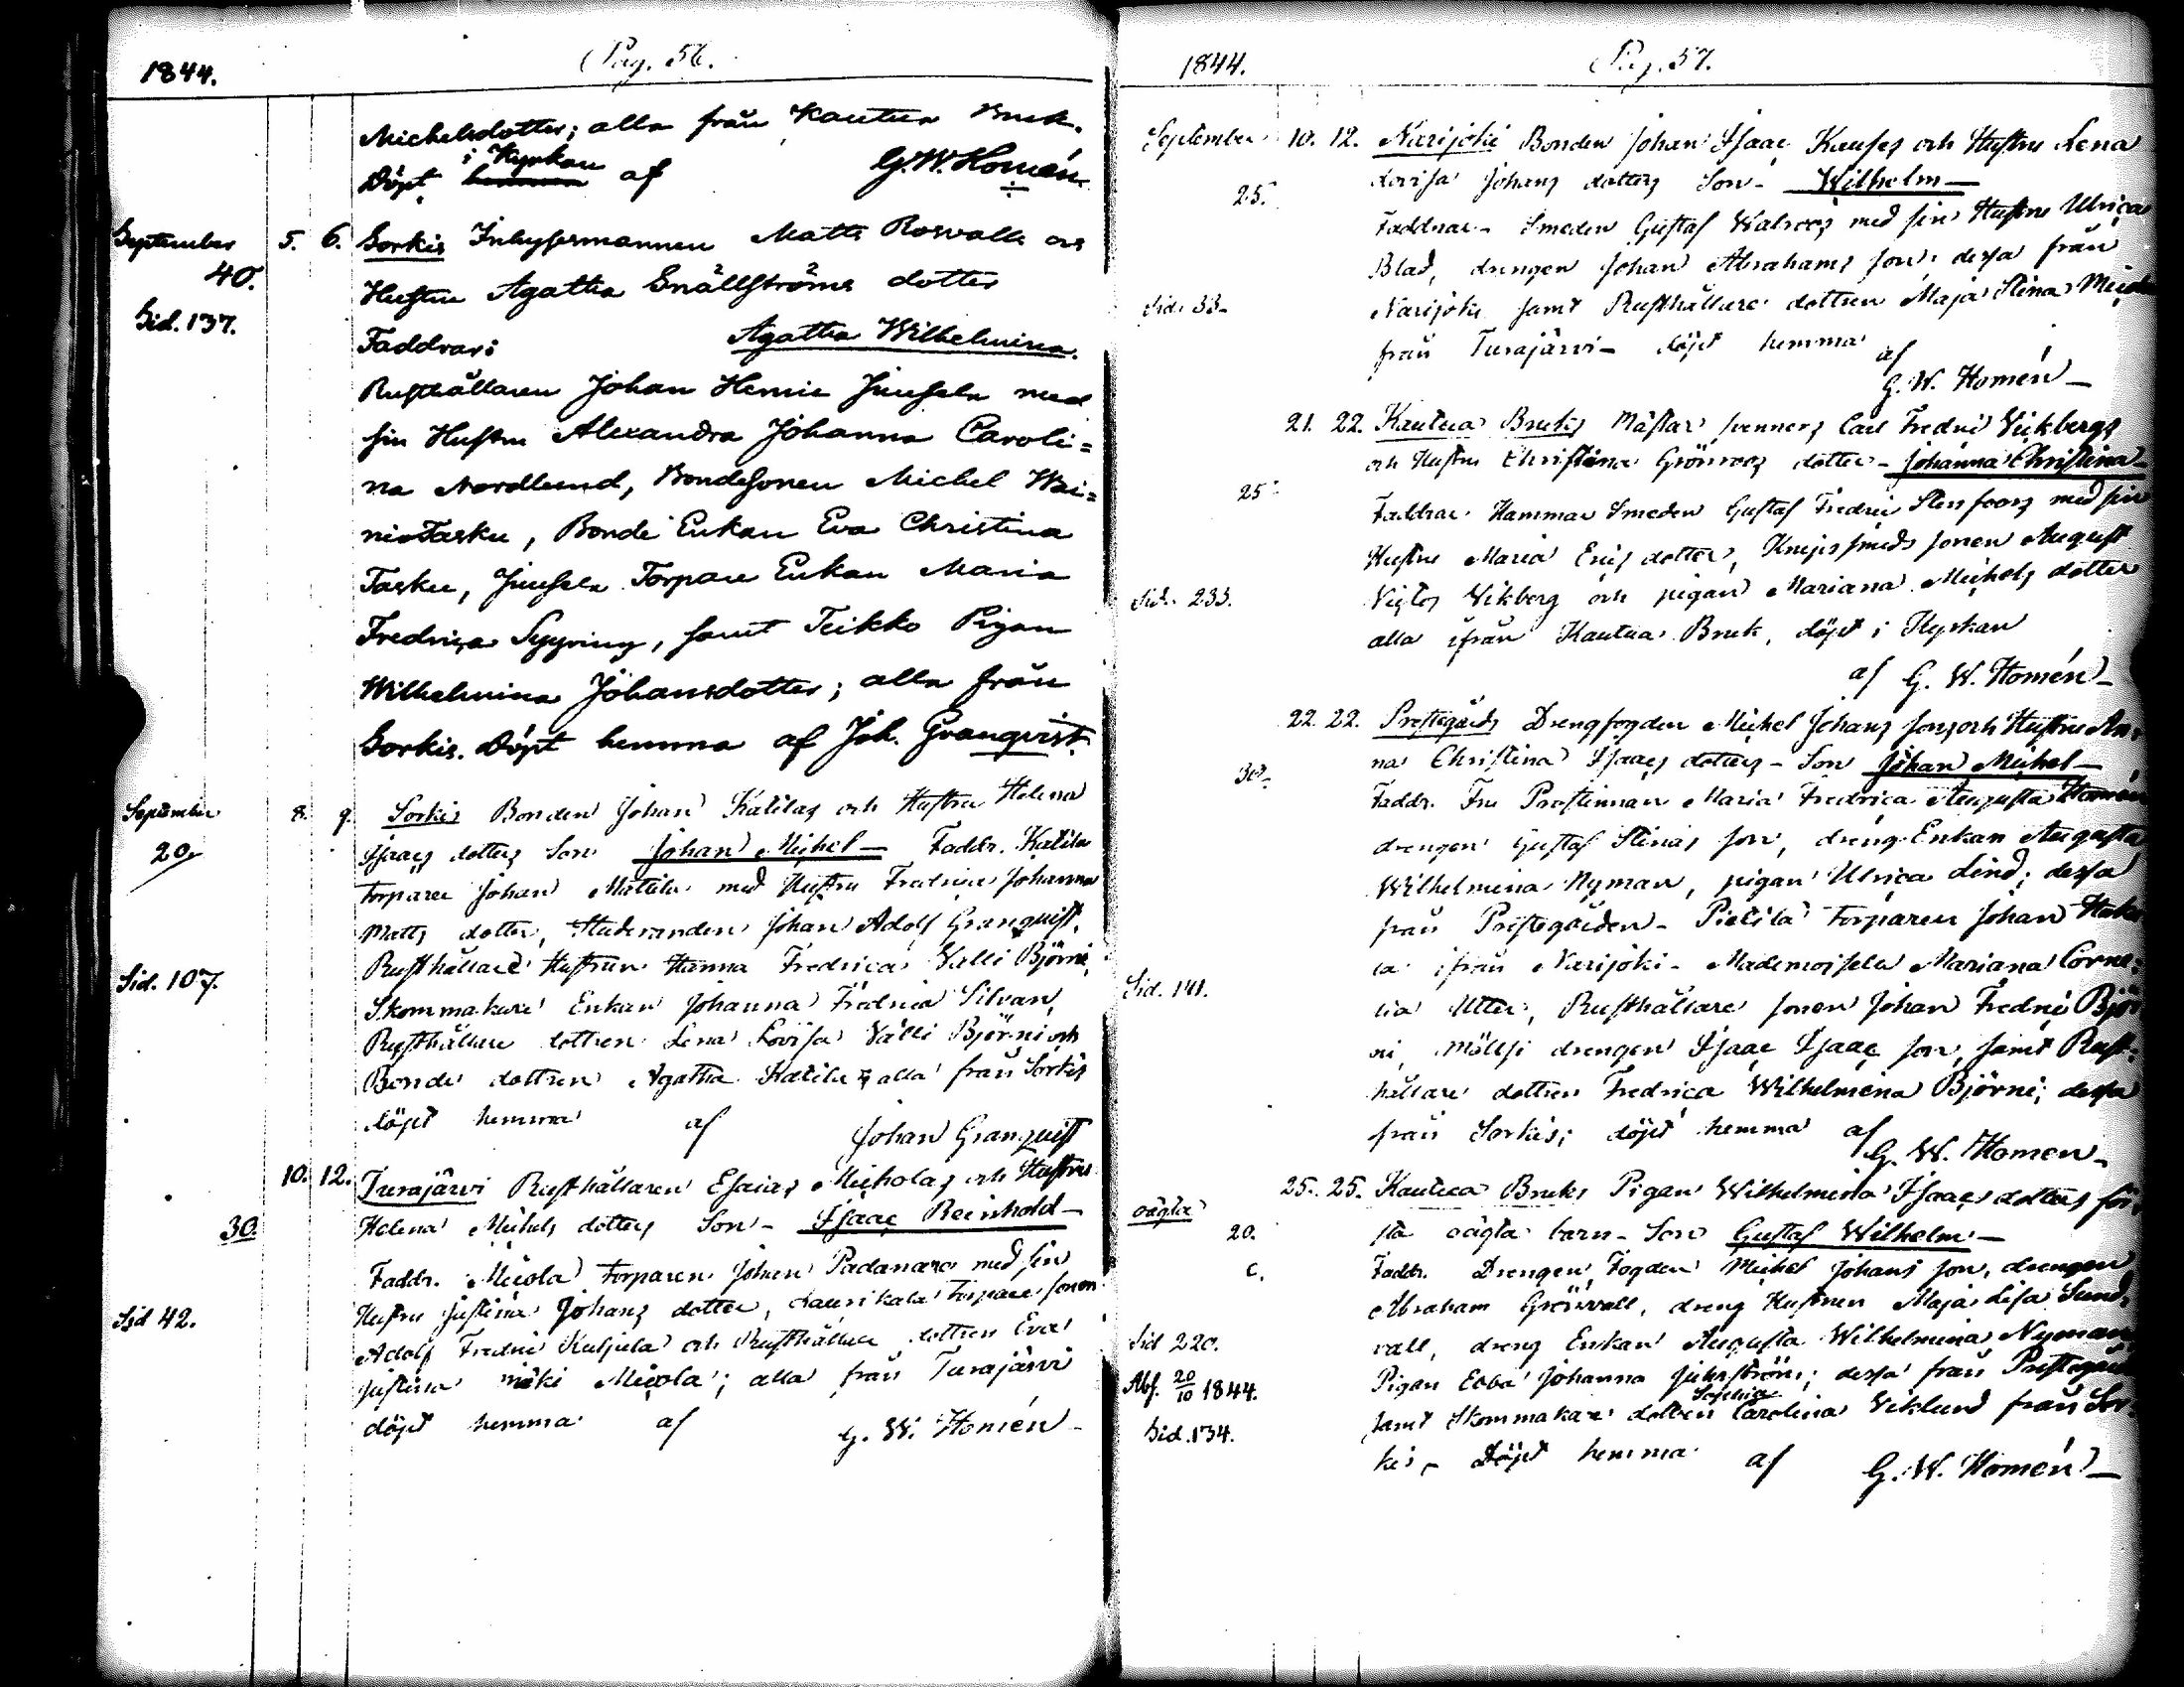 1844. Pag. 56.
Michelsdotter; alla från Kautua Bruk.
i Kyrkan
Döpt hemma af G. W. Homén
September 5. 6. Sorkis Inhysesmannen Matts Rosvalls och
40. Hustru Agatha Snällströms dotter
Sid. 137. Faddrar: Agatha Wilhelmina.
Rusthållaren Johan Henric Junsela med
sin Hustru Alexandra Johanna Caroli=
na Nordlund, Bondesonen Michel Wai=
nio Tasku, Bonde Enkan Eva Christina
Tasku, Junsela Torpare Enkan Maria
Fredrica Syyring, samt Teikko Pigan
Wilhelmina Johansdotter; alla från
Sorkis. Döpt hemma af Joh. Granqvist.
September 8. 9. Sorkis Bonden Johan Katilas och Hustru Helena
20. Isaacs dotters Son Johan Michel — Faddr. Katila
torparen Johan Mattila med Hustru Fredrica Johanna
Matts dotter, Studeranden Johan Adolf Granquist,
Rusthållare Hustrun Hanna Fredrica Valli Björni,
Sid. 107. Skommakare Enkan Johanna Fredrica Silvan,
Rusthållare dottren Lena Lovisa Välli Björni och
Bonde dottren Agatha Katila alla från Sorkis
döpt hemma af Johan Granquist
10. 12. Turajärvi Rusthållaren Esaias Micholas och Hustru
30. Helena Michels dotters Son — Isaac Reinhold —
Faddr. Micola torparen Johan Padanaro med sin
Hustru Justina Johans dotter, Laurikala torpare sonen
Sid 42. Adolf Fredric Kuljula och Rusthållare dottren Eva
Justina mäki Micola; alla från Turajärvi
döpt hemma af G. W. Homén —
1844. Pag. 57.
September 10. 12. Narijoki Bonden Johan Isaac Kauses och Hustru Lena
25. Lovisa Johans dotters Son — Wilhelm —
Faddrar — Smeden Gustaf Walroos med sin Hustru Ulrica
Blad, drengen Johan Abrahams son; dessa från
Sid. 33. Narijoki samt Rusthållare dottren Maja Stina
från Turajärvi — döpt hemma af
G. W. Homén —
21. 22. Kautua Bruks Mästar svennens Carl Fredric Vikbergs
och Hustru Christina Grönroos dotter — Johanna Christina —
25 Faddrar Hammar Smeden Gustaf Fredric Stensroos med sin
Hustru Maria Erics dotter, Knipssmeds sonen August
Sid. 233. Victor Vikberg och pigan Mariana Michels dotter
alla ifrån Kautua Bruk, döpt i Kyrkan
af G. W. Homén —
22. 22. Prestegårds Drengfogden Michel Johans sons och Hustru An=
30 na Christina Isaacs dotters — Son Johan Michel —
Faddr. Fru Prostinnan Maria Fredrica Augusta Homén
drengen Gustaf Stinas son, dreng Enkan Augusta
Wilhelmina Nyman, pigan Ulrica Lind; dessa
från Prestegården — Pietilä torparen Johan
ifrån Narijoki — Mademoisella Mariana Corne=
Sid. 141. lia Utter, Rusthållare sonen Johan Fredric Björ
ni, Mölsi drengen Isaac Isaacs son, samt Rust=
hållare dottren Fredrica Wilhelmina Björni; dessa
från Sorkis; döpt hemma af
G. W. Homén —
25. 25. Kautua Bruks Pigan Wilhelmina Isaacs dotters för=
oägta 20. sta oägta barn — Son Gustaf Wilhelm —
c. Faddr. Drengen, Fogden Michel Johans son, drengen
Abraham Grönvall, dreng Hustrun Maja Lisa Sund=
Sid 220. vall, dreng Enkan Augusta Wilhelmina Nyman
Pigan Ebba Johanna Juhnström; dessa från Prestegård
Abf. 20/10 1844. Sophia
samt Skommakare dottren Carolina Viklund från Sor=
Sid. 134. kis — Döpt hemma af G. W. Homén —